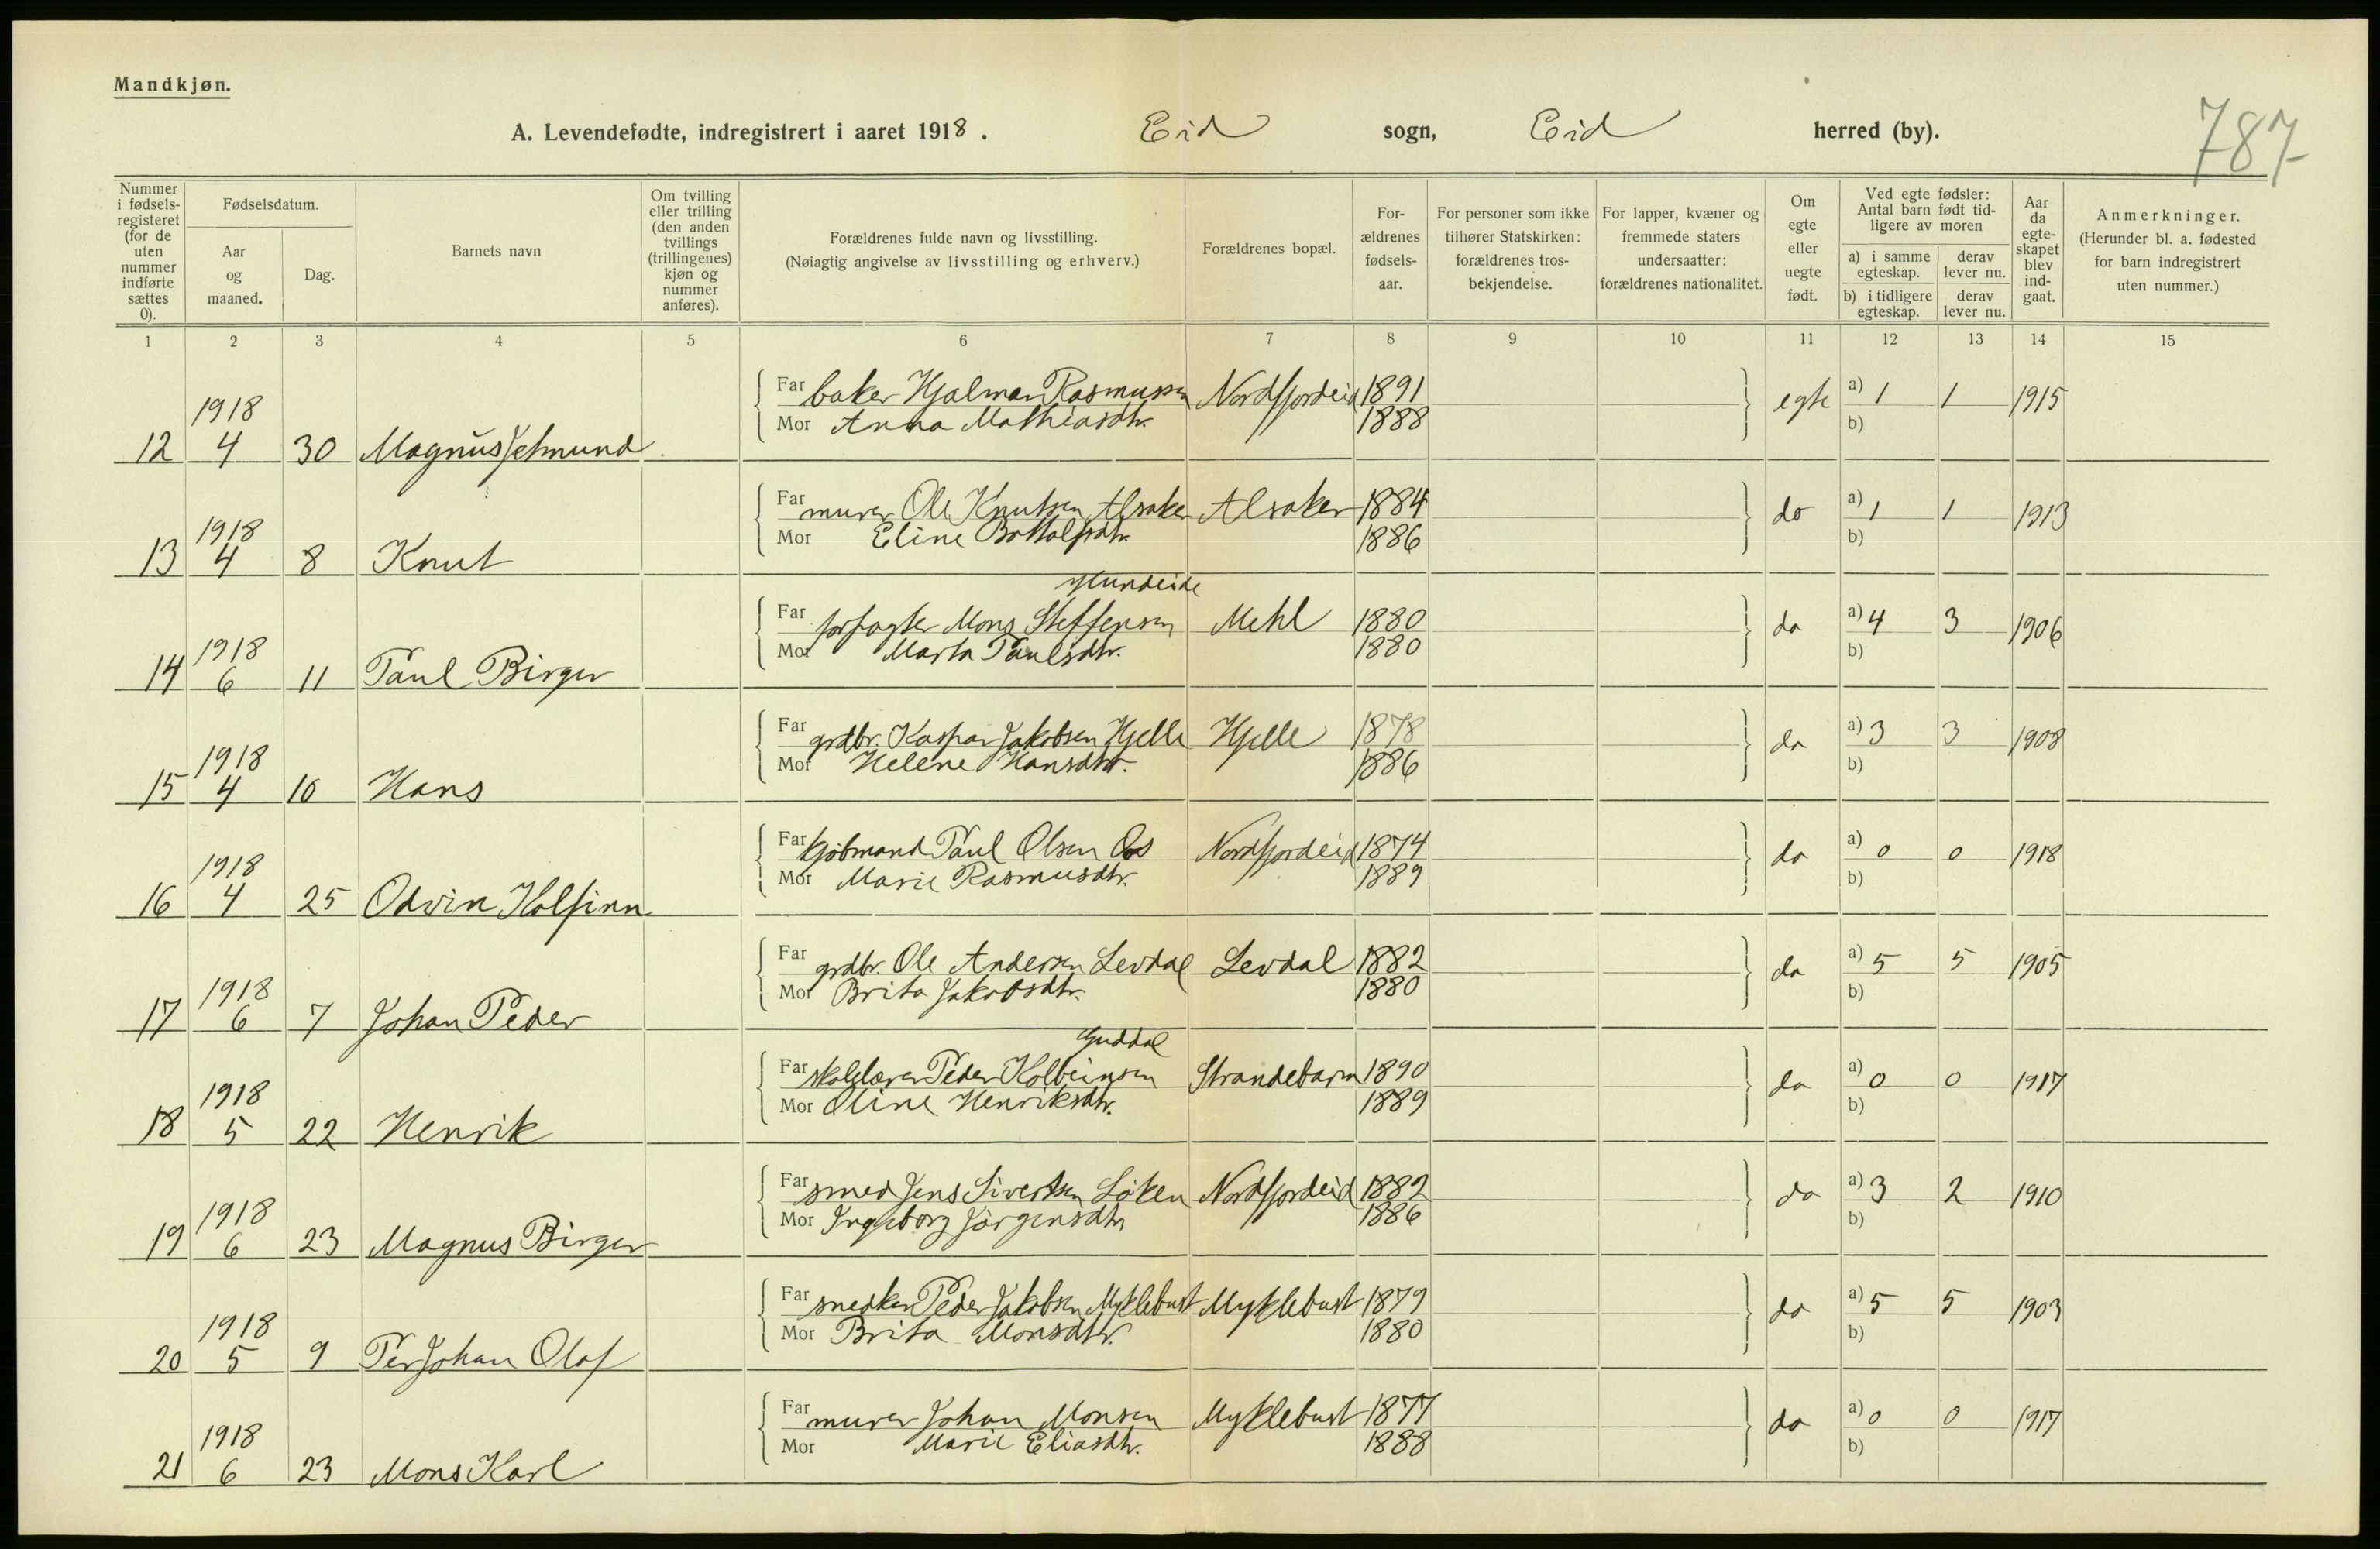 Mandkjøn.
A. Levendefødte, indregistrert i aaret 1918. Eid sogn, Eid herred (by).
787
Nummer i fødsels-registeret (for de uten nummer indførte sættes 0).
Fødselsdatum.
Aar og maaned.
Dag.
Barnets navn
Om tvilling eller trilling (den anden tvillings (trillingenes) kjøn og nummer anføres).
Forældrenes fulde navn og livsstilling.
(Nøiagtig angivelse av livsstilling og erhverv.)
Forældrenes bopæl.
For-ældrenes fødsels-aar.
For personer som ikke tilhører Statskirken: forældrenes tros-bekjendelse.
For lapper, kvæner og fremmede staters undersaatter: forældrenes nationalitet.
Om egte eller uegte født.
Ved egte fødsler: Antal barn født tid-ligere av moren
a) i samme egteskap.
derav lever nu.
b) i tidligere egteskap.
derav lever nu.
Aar da egte-skapet blev ind-gaat.
Anmerkninger.
(Herunder bl. a. fødested for barn indregistrert uten nummer.)
1 2 3 4 5 6 7 8 9 10 11 12 13 14 15
Far baker Hjalmar Rasmussen Nordfjordeid 1891 egte a) 1 1 1915
1918
Mor Anna Mathiasdtr. 1888 b)
12 4 30 Magnus Jetmund
Far murer Ole Knutsen Alsaker Alsaker 1884 do a) 1 1 1913
1918
Mor Eline Bottolfsdtr. 1886 b)
13 4 8 Knut
Hundeide
Far forpagter Mons Steffensen Mehl 1880 do a) 4 3 1906
1918
Mor Marta Paulsdtr. 1880 b)
14 6 11 Paul Birger
Far grdbr. Kaspar Jakobsen Hjelle Hjelle 1878 do a) 3 3 1908
1918
Mor Helene Hansdtr. 1886 b)
15 4 10 Hans
Far kjøbmand Paul Olsen Os Nordfjordeid 1874 do a) 0 0 1918
1918
Mor Marie Rasmusdtr. 1889 b)
16 4 25 Odvin Kolfinn
Far grdbr. Ole Andersen Levdal Levdal 1882 do a) 5 5 1905
1918
Mor Brita Jakobsdtr. 1880 b)
17 6 7 Johan Peder
Guddal
Far skolelærer Peder Kolbeinsen Strandebarm 1890 do a) 0 0 1917
1918
Mor Oline Henriksdtr. 1889 b)
18 5 22 Henrik
Far smed Jens Sivertsen Løken Nordfjordeid 1882 do a) 3 2 1910
1918
Mor Ingeborg Jørgensdtr 1886 b)
19 6 23 Magnus Birger
Far snedker Peder Jakobsen Myklebust Myklebust 1879 do a) 5 5 1903
1918
Mor Brita Monsdtr. 1880 b)
20 5 9 Per Johan Olaf
Far murer Johan Monsen Myklebust 1877 do a) 0 0 1917
1918
Mor Marie Eliasdtr. 1888 b)
21 6 23 Mons Karl